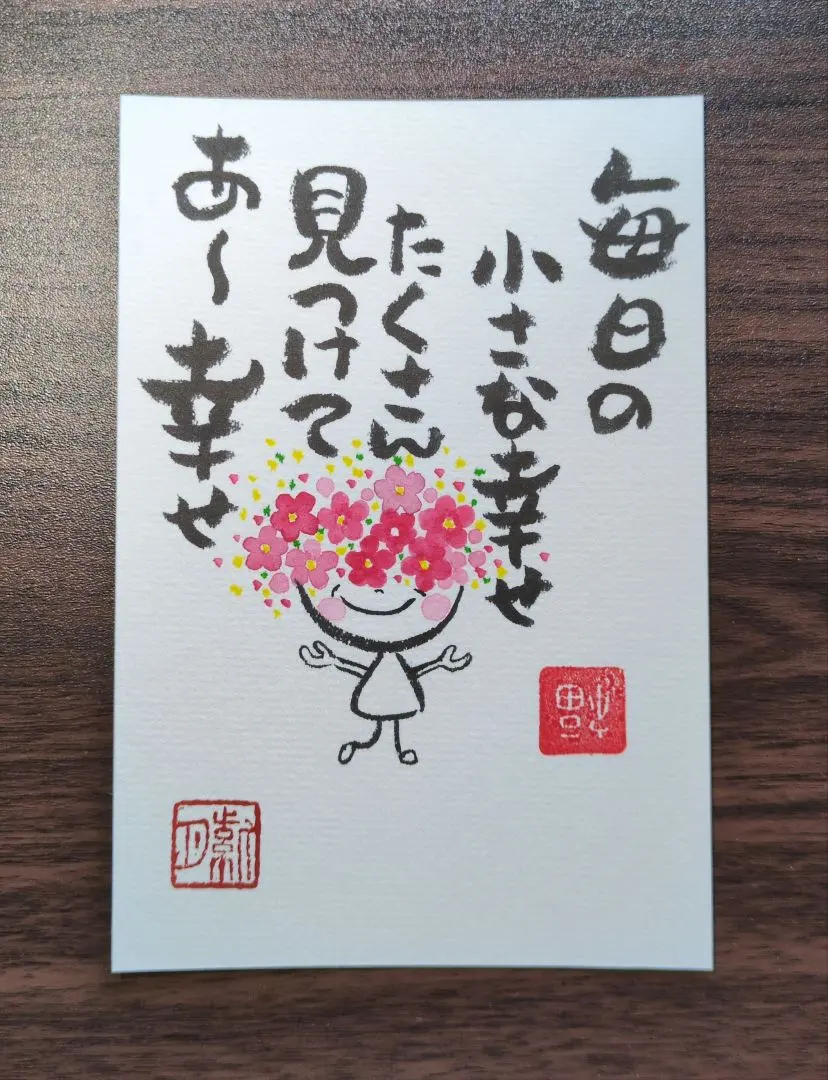 毎日の
小さな幸せ
たくさん
見つけて
あ～幸せ